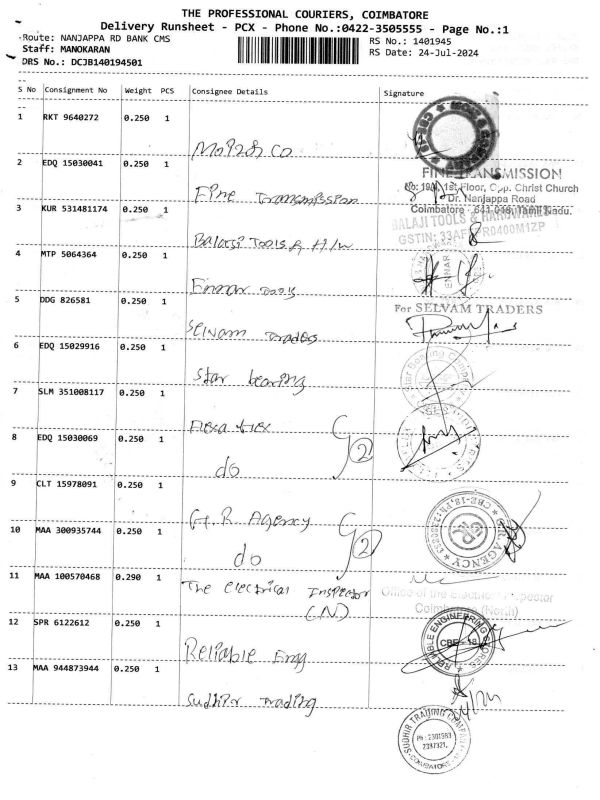 THE PROFESSIONAL COURIERS, COIMBATORE
Delivery Runsheet - PCX - Phone No.:0422-3505555 - Page No.:1
Route: NANJAPPA RD BANK CMS
RS No.: 1401945
Staff: MANOKARAN
RS Date: 24-Jul-2024
DRS No.: DCJB140194501
S No Consignment No Weight PCS Consignee Details Signature
1 RKT 9640272 0.250 1
2 EDQ 15030041 0.250 1
Fine Transmission
FINE TRANSMISSION
1st Floor, Opp. Christ Church
Dr. Nanjappa Road
Coimbatore - 641 018, Tamil Nadu.
3 KUR 531481174 0.250 1
Balaji Tools & H/w
BALAJI TOOLS & HARDWARE
4 MTP 5064364 0.250 1
Ennar Tools
ENNAR
5 DDG 826581 0.250 1
Selvam Traders
For SELVAM TRADERS
6 EDQ 15029916 0.250 1
Star bearing
Star Bearing
7 SLM 351008117 0.250 1
8 EDQ 15030069 0.250 1
do
2
9 CLT 15978091 0.250 1
G.R. Agency
G.R. AGENCY
CBE-18
10 MAA 300935744 0.250 1
do
2
11 MAA 100570468 0.290 1
The electrical Inspector
(N)
Office of the Electrical Inspector
Coimbatore (North)
12 SPR 6122612 0.250 1
Reliable Engg
RELIABLE ENGINEERING
CBE - 18
13 MAA 944873944 0.250 1
Sudhir Trading
SUDHIR TRADING COMPANY
Ph : 2301983
2387321
COIMBATORE